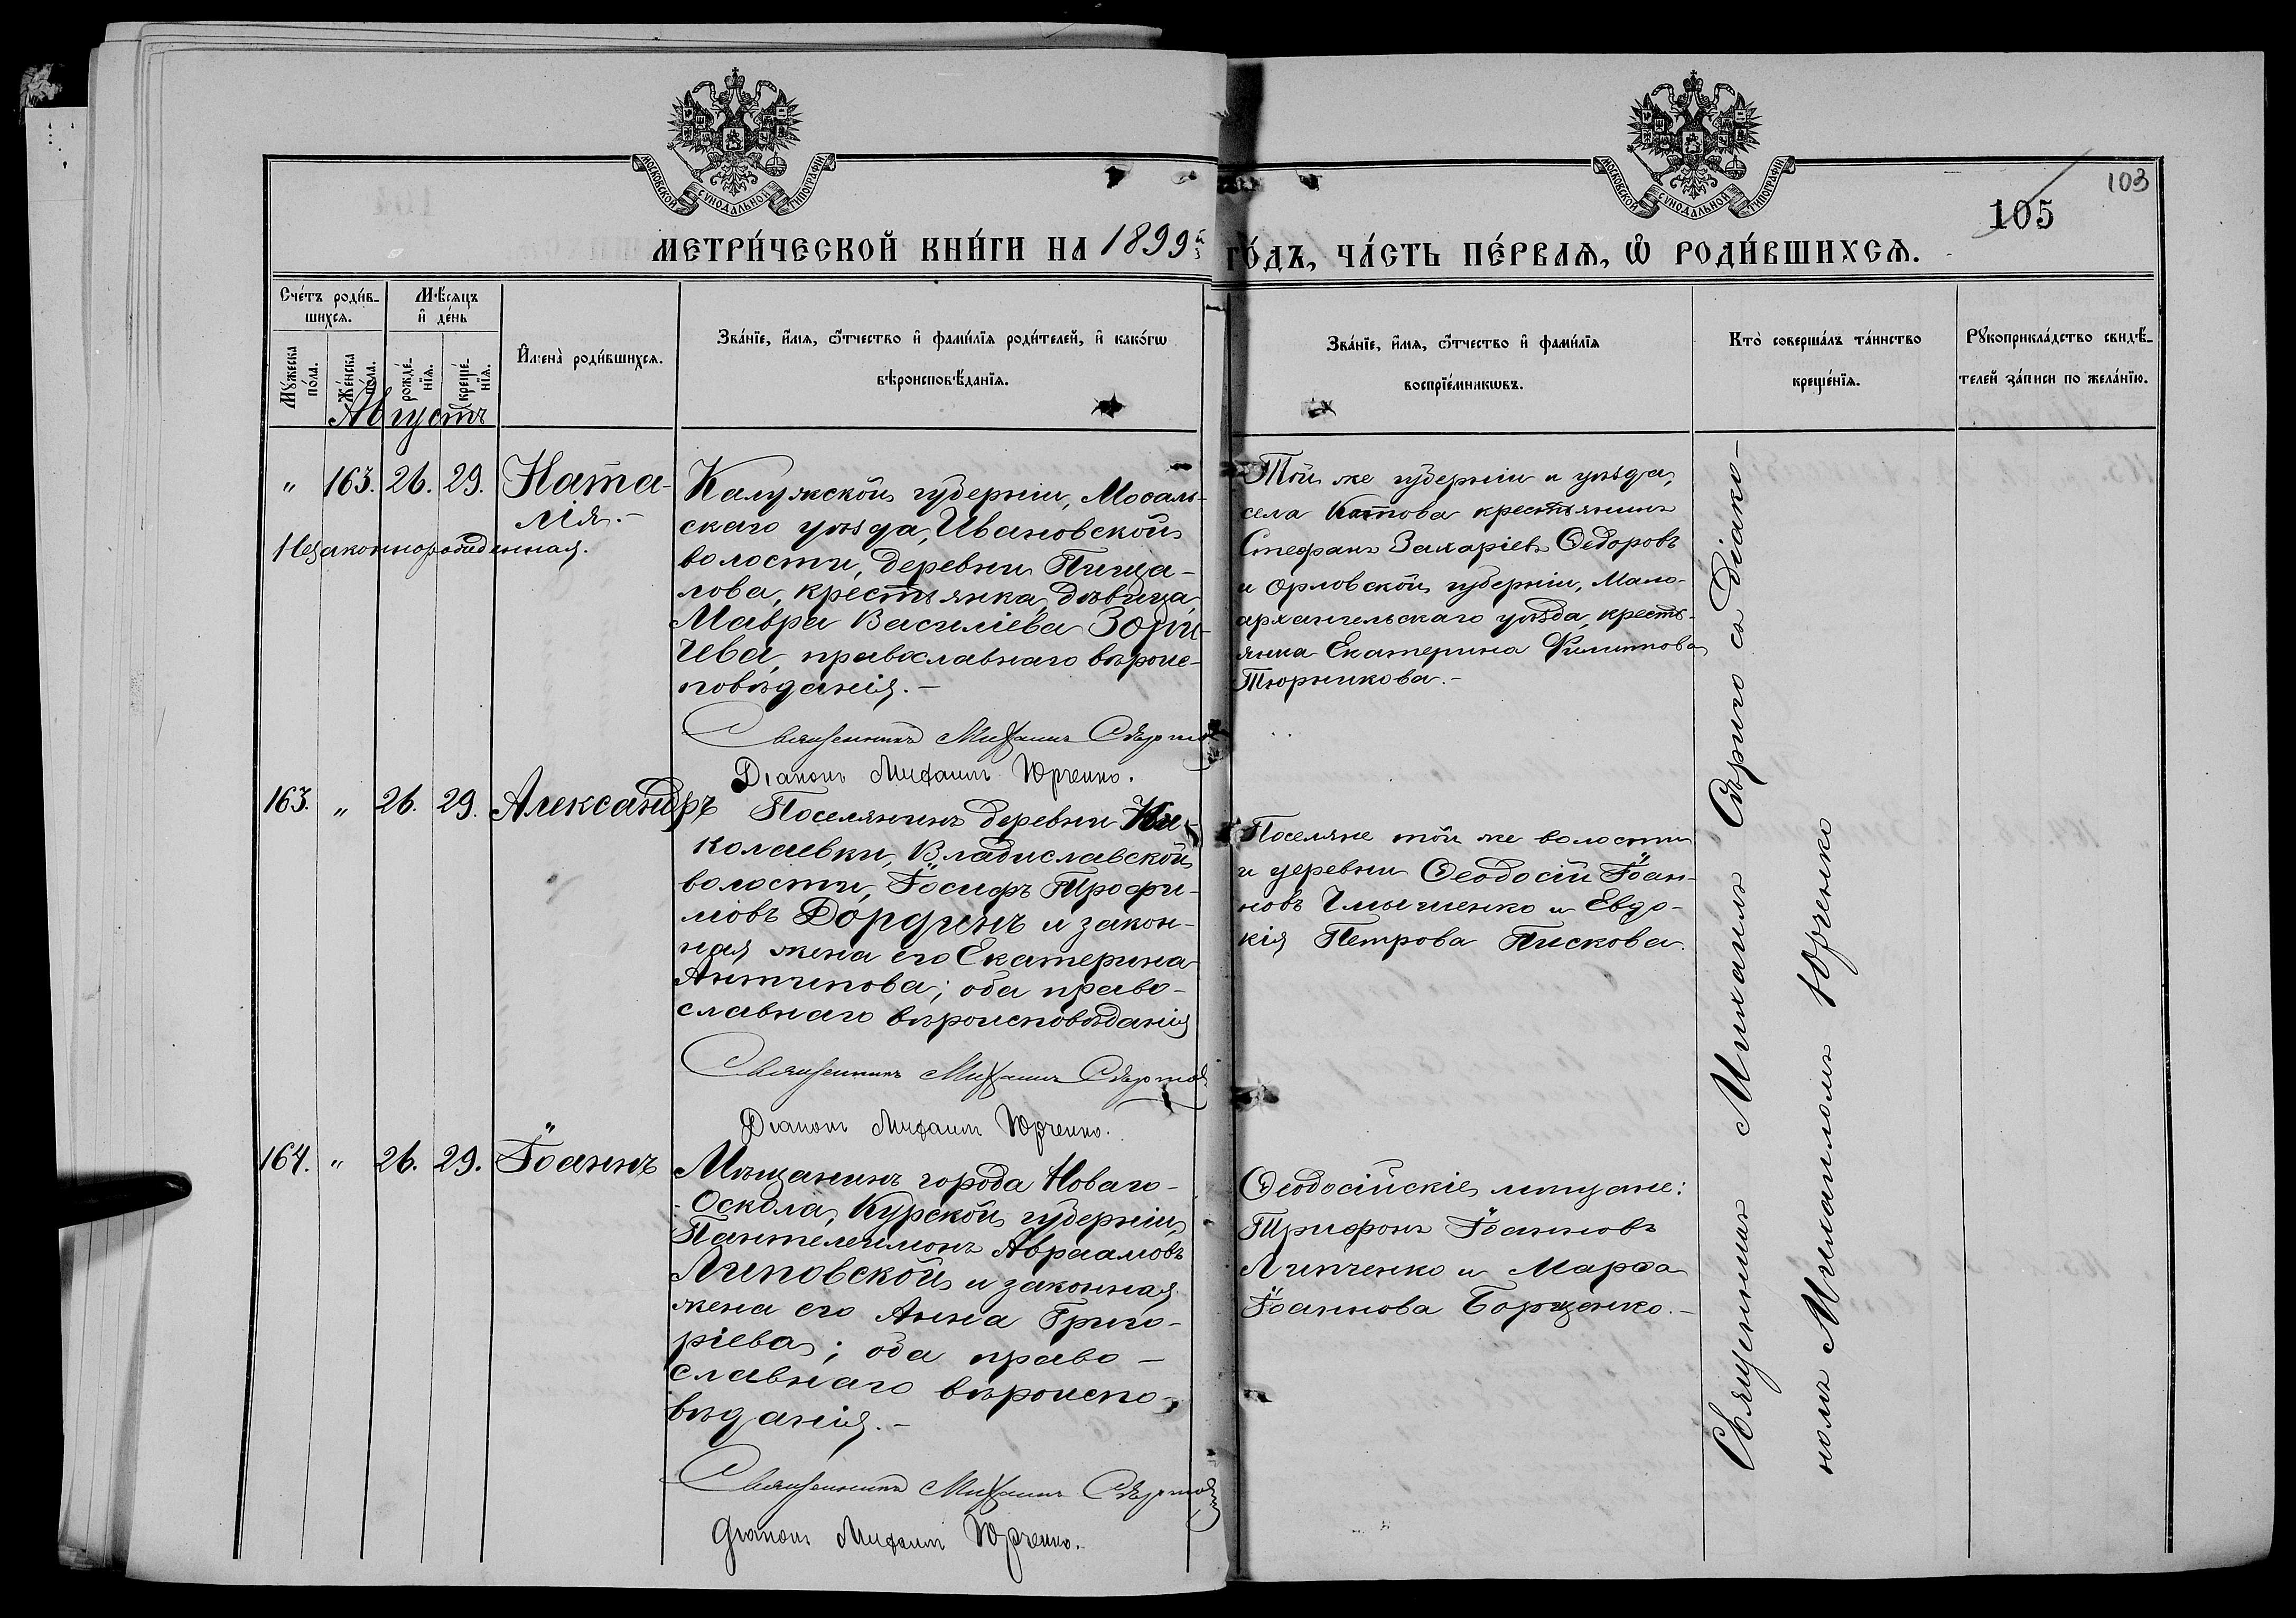 МОСКОВСКОЙ СУНОДАЛЬНОЙ ТИПОГРАФІИ
МОСКОВСКОЙ СУНОДАЛЬНОЙ ТИПОГРАФІИ
103
105
МЕТРИ́ЧЕСКОЙ КНИ́ГИ НА 1899й
ГО́ДЪ, ЧА́СТЬ ПЕ́РВАѦ, Ѡ҆ РОДИ́ВШИХСѦ.
Сче́тъ роди́в-
шихсѧ.
Мѣ́сѧцъ
и҆ де́нь
Мꙋ́жеска
по́ла.
Же́нска
по́ла.
рожде́-
нїѧ.
креще́-
нїѧ.
И҆мена̀ роди́вшихсѧ.
Зва́нїе, и҆́мѧ, ѻ҆́тчество и҆ фами́лїѧ роди́телей, и҆ како́гѡ
вѣроисповѣ́данїѧ.
Зва́нїе, и҆́мѧ, ѻ҆́тчество и҆ фами́лїѧ
воспрїе́мникѡвъ.
Кто̀ соверша́лъ та́инство
креще́нїѧ.
Рꙋкоприкла́дство свидѣ́-
телей за́писи по жела́нїю.
Августъ
" 163. 26. 29. Ната-
лія.-
Незаконнорожденная.
Калужской губерніи, Мосаль-
скаго уѣзда, Ивановской
волости, деревни Пища-
лова, крестьянка, дѣвица
Мавра Василіева Зори-
чева, православнаго вѣроис-
повѣданія.-
Священникъ Михаилъ
Діаконъ Михаилъ Юрченко.
Той же губерніи и уѣзда,
села крестьянинъ
Стефанъ Захаріевъ Ѳедоровъ
и Орловской губерніи, Мало-
архангельскаго уѣзда, кресть-
янка Екатерина Филиппова
Тюрникова.-
163. " 26. 29. Александръ
Поселянинъ деревни Ни-
колаевки, Владиславской
волости, Іосифъ Трофи-
мовъ Дординъ и закон-
ная жена его Екатерина
Антипова; оба право-
славнаго вѣроисповѣданія
Священникъ Михаилъ
Діаконъ Михаилъ Юрченко.
Поселяне той же волости
и деревни Ѳеодосій Іоан-
новъ и Евдо-
кія Петрова Пискова.
164. " 26. 29. Іоаннъ
Мѣщанинъ города Новаго-
Оскола, Курской губерніи,
Пантелеимонъ Авраамовъ
Липовской и законная
жена его Анна Григо-
ріева; оба право-
славнаго вѣроиспо-
вѣданія.-
Священникъ Михаилъ
Діаконъ Михаилъ Юрченко.
Ѳеодосійскіе мѣщане:
Трифонъ Іоанновъ
Липченко и Марѳа
Іоаннова Борщенко.-
Священникъ Михаилъ съ діако-
номъ Михаиломъ Юрченко